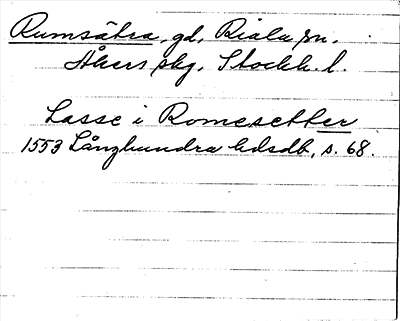 Rumsätra, gd, Riala sn.
Åkers skg. Stockh. l.
Lasse i Romesetter
1553 Långhundra hdsdb, s. 68.